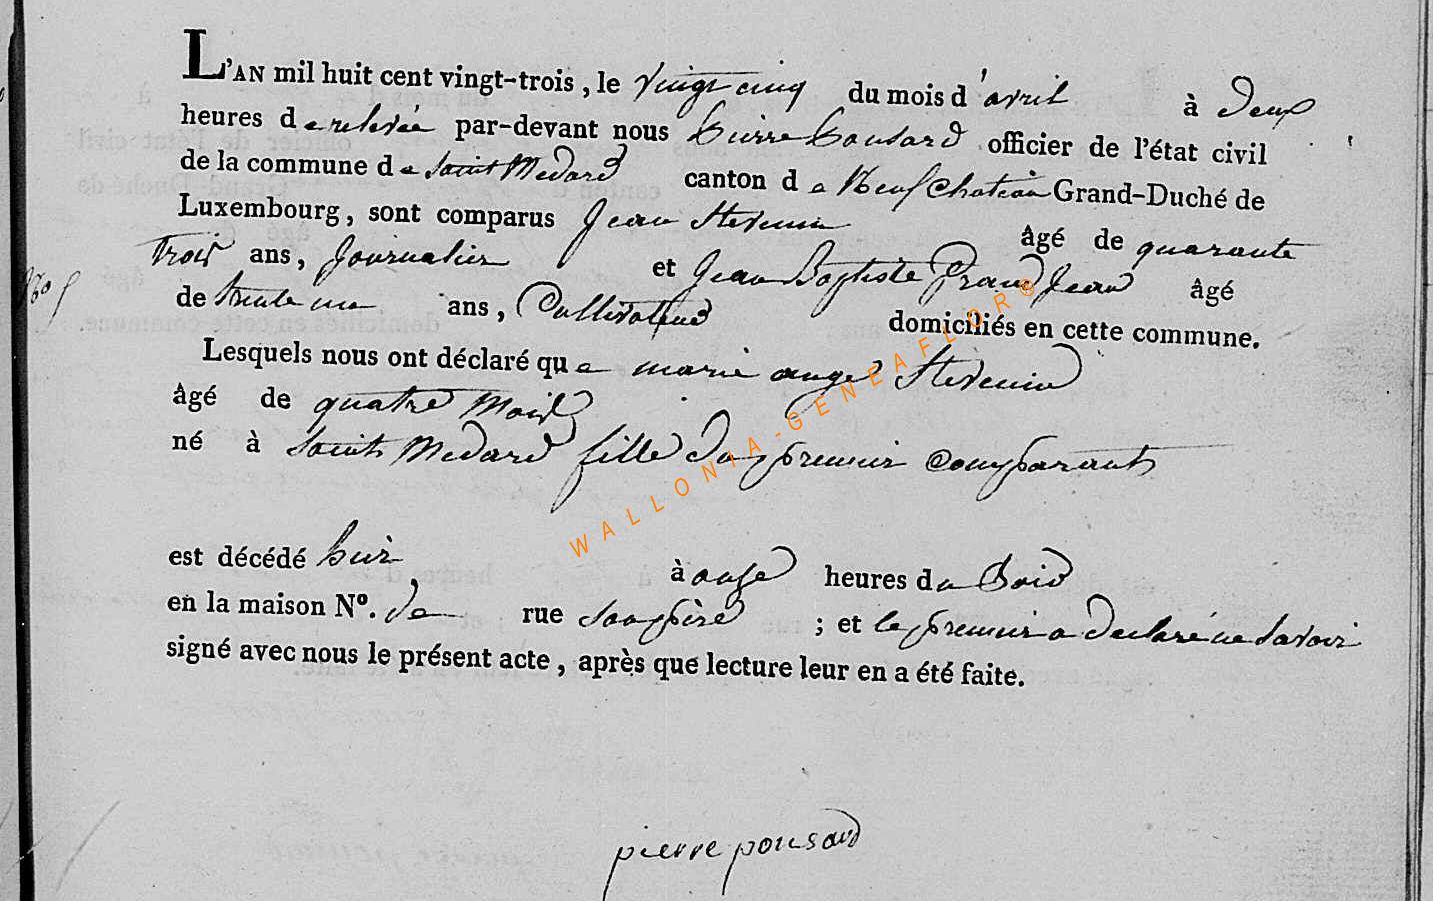 L'AN mil huit cent vingt-trois, le vingt cinq du mois d'avril à deux
heures de relevée par-devant nous pierre pousard officier de l'état civil
de la commune de Saint Medard canton de Neufchateau Grand-Duché de
Luxembourg, sont comparus Jean Stevenin âgé de quarante
trois ans, Journalier et Jean Baptiste Grand Jean âgé
de trente un ans, Cultivateur domiciliés en cette commune.
Lesquels nous ont déclaré que marie ange Stevenin
âgé de quatre mois
né à Saint Medard fille du premier comparant
est décédé hier à onze heures du Soir
en la maison N°. de rue son père ; et le premier a declaré ne savoir
signé avec nous le présent acte, après que lecture leur en a été faite.
pierre pousard
WALLONIA-GENEAFLORE